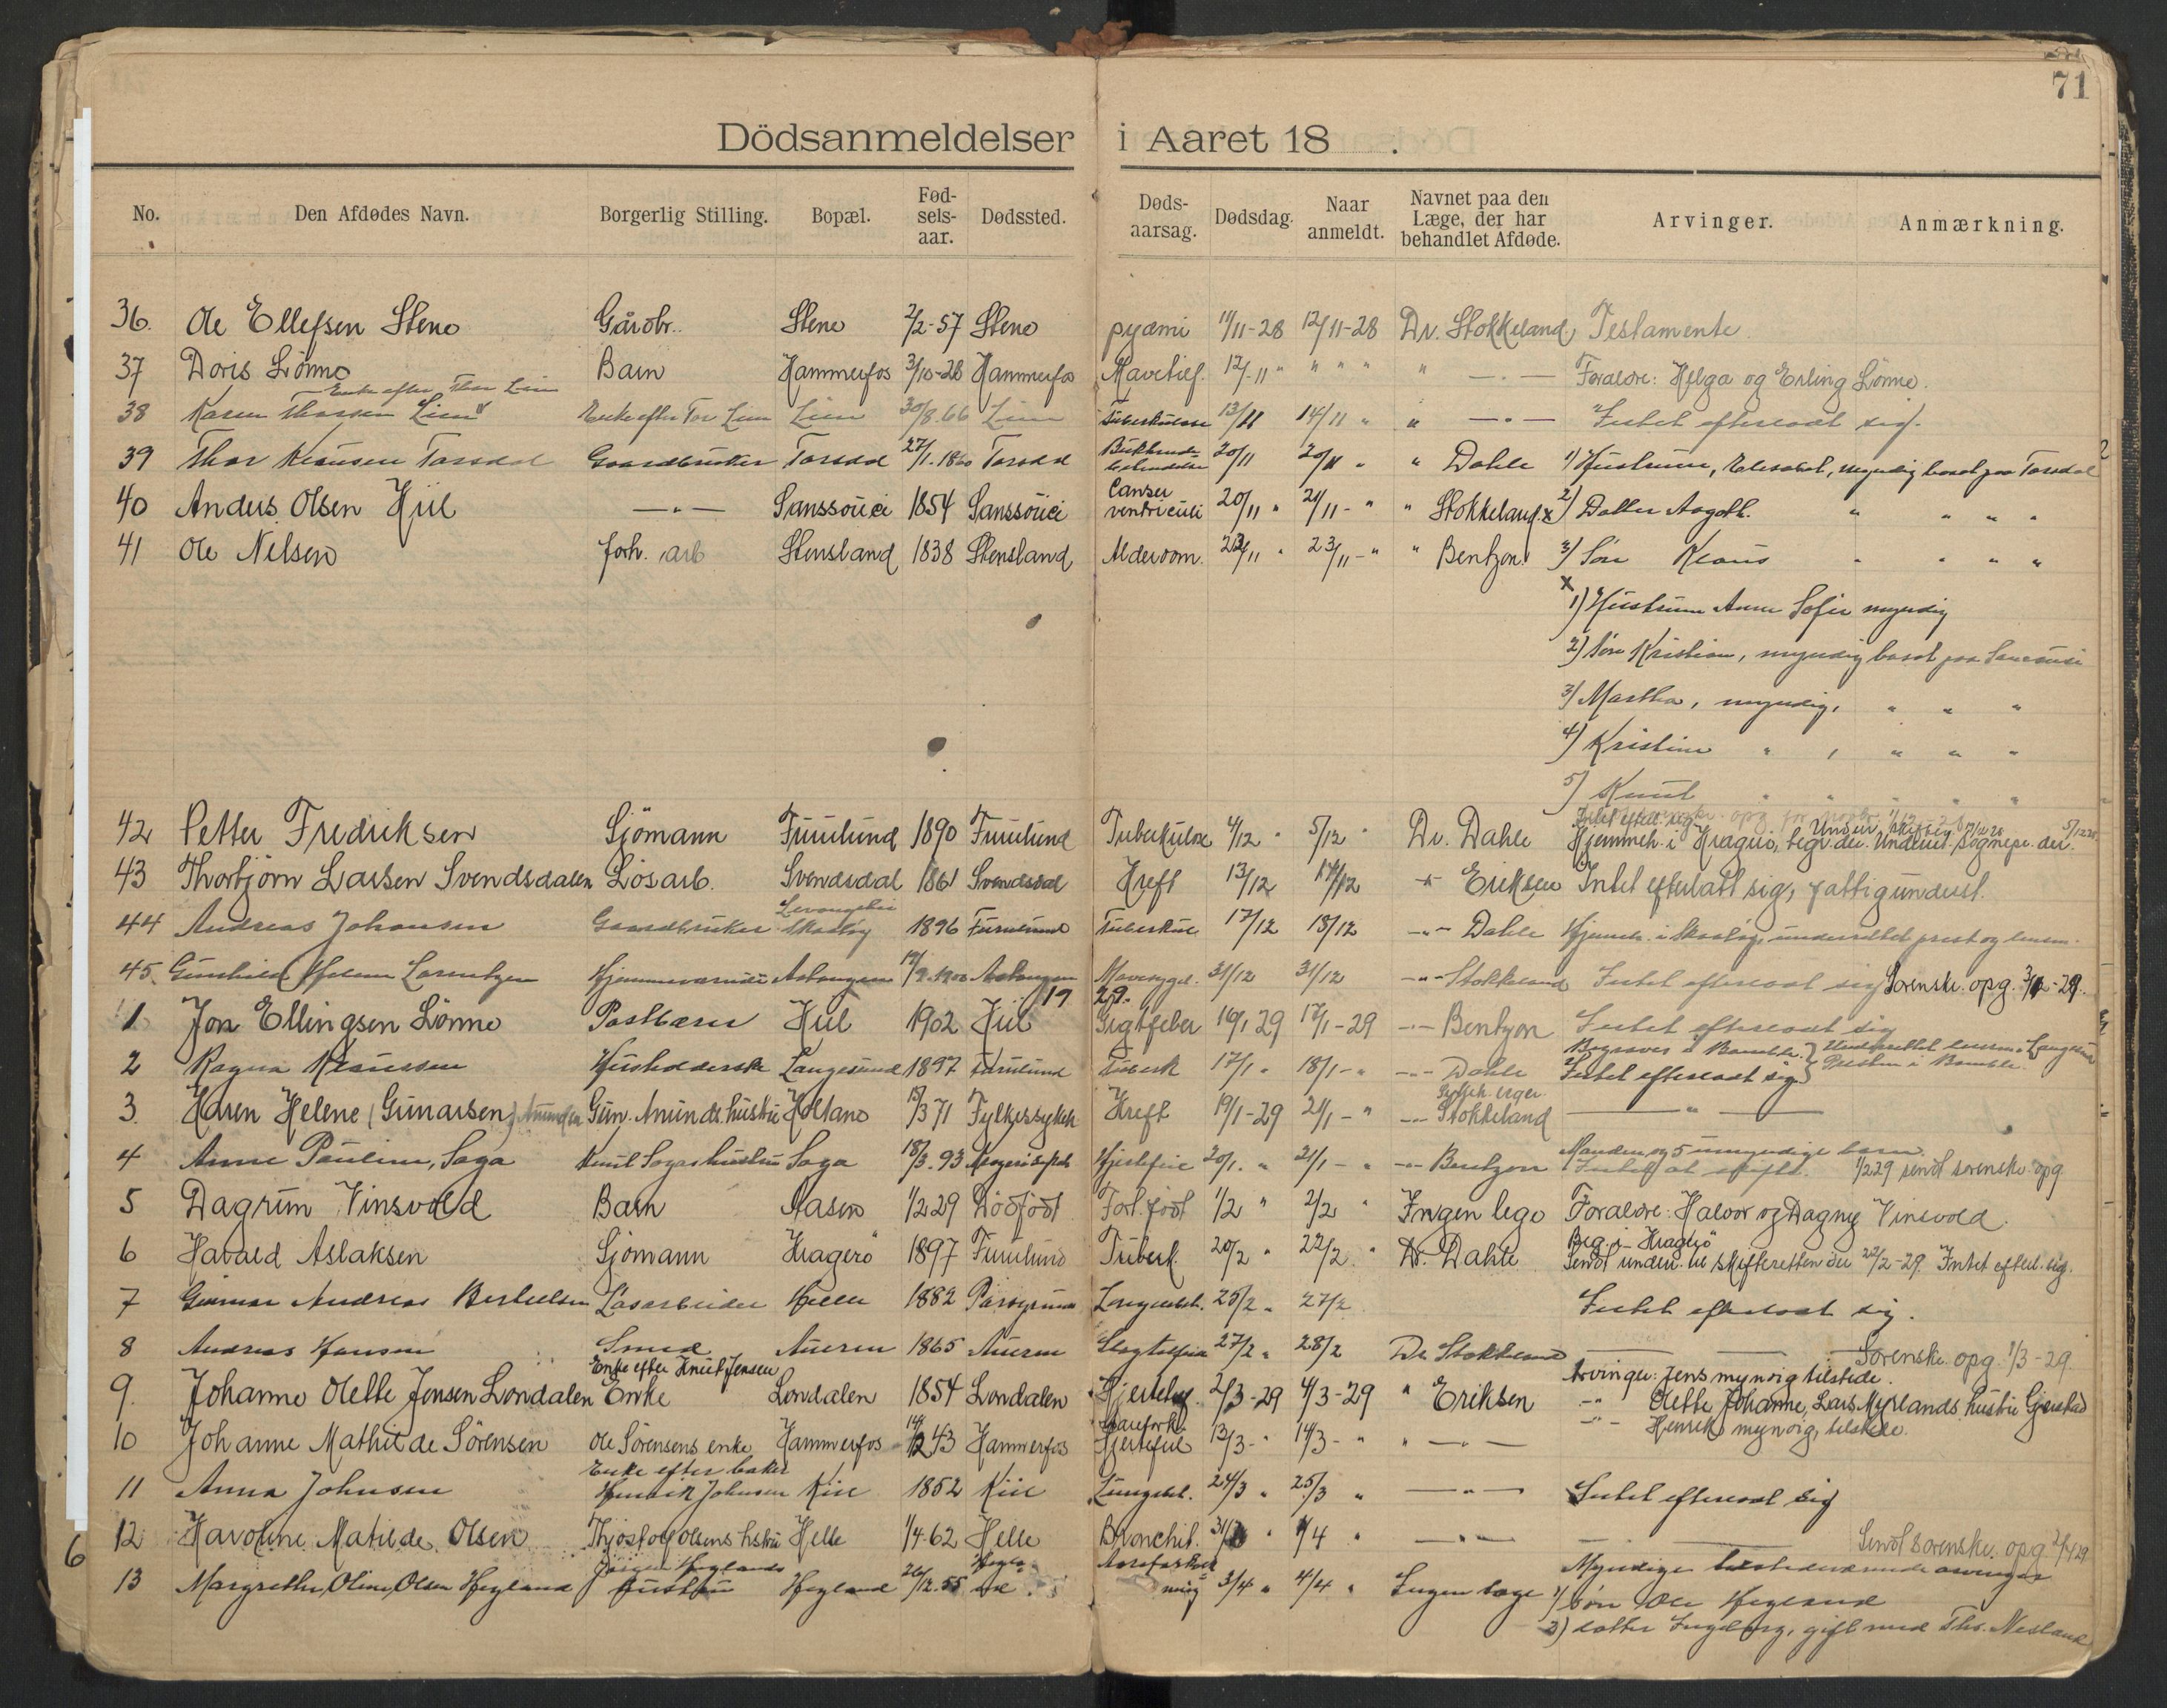 71
Dödsanmeldelser i Aaret 18 .
No. Den Afdødes Navn. Borgerlig Stilling. Bopæl. Fød-sels-aar. Dødssted. Døds-aarsag. Dødsdag. Naar anmeldt. Navnet paa den Læge, der har behandlet Afdøde. Arvinger. Anmærkning.
36. Ole Ellefsen Stene Gårdbr. Stene 2/2-57 Stene pyæmi 11/11-28 12/11-28 Dr. Stokkeland Testamente
37 Doris Lönne Barn Hammerfos 3/10-28 Hammerfos Mavetilf. 12/11 " " " " " —"— Foraldre: Helga og Erling Lönne.
Enke efter Thor Lien
38 Karen Thorsen Lien Enke efter Tor Lien Lien 30/8.66 Lien Tuberkulose 13/11 14/11 " " —"— Intet efterladt sig.
39 Thor Klausen Torsdal Gaardbruker Torsdal 27/1.1860 Torsdal 20/11 20/11 " " Dahle 1) Hustruen, Elisabet, myndig bosat paa Torsdal
40 Anders Olsen Hül —"— Sanssouci 1854 Sanssouci Canser ventriculi 20/11 " 21/11- " " Stokkeland x 2) Datter Aagoth. " " " "
41 Ole Nilsen forh. arb Stensland 1838 Stensland Alderdom. 23/11 " 23/11-" " Bentzon 3) Søn Klaus " " " "
x
1) Hustruen Anne Sofie myndig
2) Søn Kristian, myndig bosat paa Sanssouci
3) Martha, myndig, " " "
4) Kristine " , " " "
5) Knut " " " " "
42 Petter Fredriksen Sjömann Furulund 1890 Furulund Tuberkulose 4/12 " 5/12 " Dr. Dahle Hjemmeh. i Kragerö, begr. der. Underret. Sognepr. der.
43 Thorbjörn Larsen Svendsdalen Lösarb. Svendsdal 1861 Svendsdal Kreft 13/12 17/12 " Eriksen Intet efterlatt sig, fattigunderst.
44 Andreas Johansen Gaardbruker Skaatøy 1896 Furulund Tuberkul 17/12 18/12 —"— Dahle Hjemmeh. i Skaatøy, underrettet prest og lensm.
45. Gunhild Helene Lorentzen Hjemmeværende 1900 31/12 31/12 —"— Stokkeland Intet efterladt sig Sorenskr. opg. 3/1-29.
19 29.
1 Jon Ellingsen Lönne Hül 1902 Hül Gigtfeber 16/1 29 17/1-29 —"— Bentzon Intet efterladt sig
2 Ragna Klausen Husholderske Langesund 1897 Furulund Tuberk 17/1 " 18/1-" —"— Dahle Intet efterladt sig
Begraves i Bamble. Underrettet lensm. i Langesund Presten i Bamble.
3. Karen Helene (Gunarsen) Amundsen Gun. Amunds. hustru Holtane 13/3 71 Fylkessykeh Kreft 19/1-29 21/1-" —"— Stokkeland —"—
4 Anne Pauline, Saga Knut Sagas hustru Saga 18/3.93 Hjertefeil 20/1. " 21/1- " —"— Bentzon Manden og 5 umyndige barn. Intet at skifte. 1/2 29 sendt sorenskr. opg
5 Dagrun Vinsvold Barn Aasen 1/2 29 Dödfödt For. födt 1/2 " 2/2 " Ingen lege Foraldre: Halvor og Dagny Vinsvold.
6 Harald Aslaksen Sjömann Kragerö 1897 Furulund Tuberk. 20/2 " 22/2 " Dr. Dahle Beg. i Kragerö
Sendt under. til Skifteretten der 22/2-29. Intet efterl. sig.
7 Gunnar Andreas Berthelsen Løsarbeider Helle 1882 Porsgrund Lungebet. 25/2 " 27/2 Intet efterladt sig.
8 Andreas Hansen Smed Aueren 1865 Aueren Slagtilfelde 27/2 " 28/2 Dr Stokkeland —— Sorenskr. opg. 1/3-29.
Enke efter Knut Jensen
9. Johanne Olette Jensen Londalen Enke Londalen 1854 Londalen Hjerteluf. 2/3-29 4/3-29 " Eriksen Arvinger: Jens myndig tilstede.
—"— Olette Johanne, Lars Myrlands hustru Gjerstad
—"— Henrik myndig, tilstede.
10 Johanne Mathilde Sörensen Ole Sörensens enke Hammerfos 43 Hammerfos Hjertefeil 13/3-" 14/3-" " —"—
Enke efter baker
11 Anna Johnsen Henrik Johnsen Kiil 1852 Kiil Lungebet. 24/3 " 25/3 " —"— Intet efterladt sig
12 Karoline Matilde Olsen Thjostolf Olsens hstru Helle 1/4 62 Helle Bronchit. 31/3 " 1/4 " —"— —— Sendt sorenskr. opg. 2/4 29
6
13 Margrethe Oline Olsen Hegland Jörgen Heglands hustru Hegland 26/12.55 3/4 " 4/4 " Ingen læge Myndige tilstedeværende arvinger
1) Søn Ole Hegland
2) datter Ingeborg, gift med Ths. Nesland